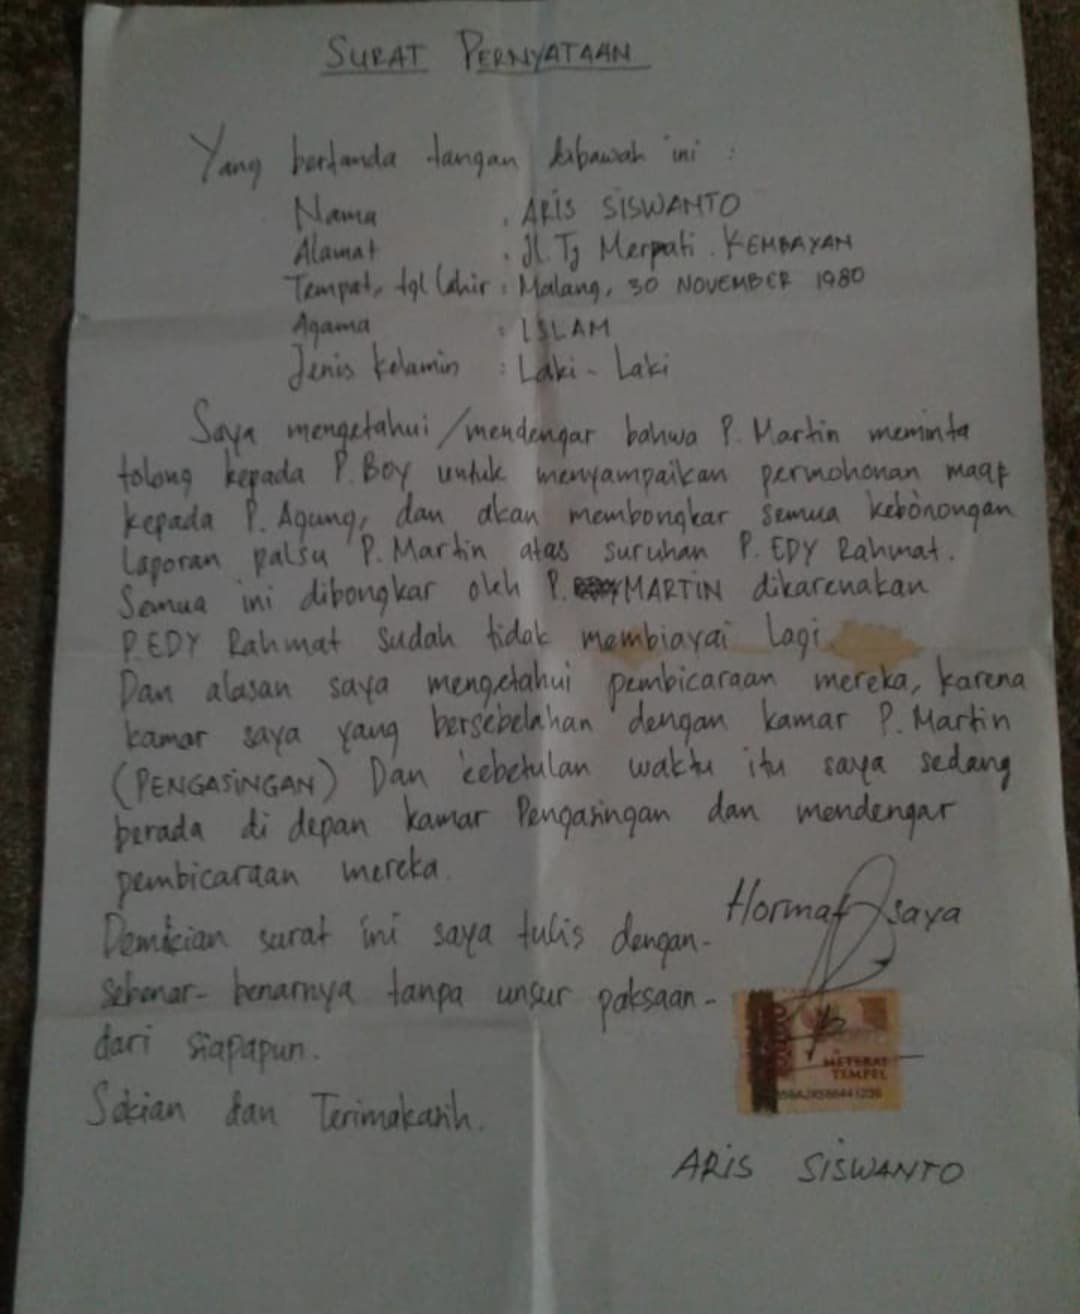 SURAT PERNYATAAN
Yang bertanda tangan dibawah ini :
Nama : ARIS SISWANTO
Alamat : Jl. Tj Merpati . KEMBAYAN
Tempat, tgl lahir : Malang, 30 NOVEMBER 1980
Agama : ISLAM
Jenis kelamin : Laki - Laki
Saya mengetahui/mendengar bahwa P. Martin meminta
tolong kepada P. Boy untuk menyampaikan permohonan maaf
kepada P. Agung, dan akan membongkar semua kebonongan
Laporan palsu P. Martin atas suruhan P. EDY Rahmat.
Semua ini dibongkar oleh P. MARTIN dikarenakan
P. EDY Rahmat sudah tidak membiayai lagi
Dan alasan saya mengetahui pembicaraan mereka, karena
kamar saya yang bersebelahan dengan kamar P. Martin
(PENGASINGAN) Dan kebetulan waktu itu saya sedang
berada di depan kamar Pengasingan dan mendengar
pembicaraan mereka.
Hormat saya
Demikian surat ini saya tulis dengan-
sebenar- benarnya tanpa unsur paksaan-
dari siapapun.
METERAI
TEMPEL
Sekian dan Terimakasih.
ARIS SISWANTO